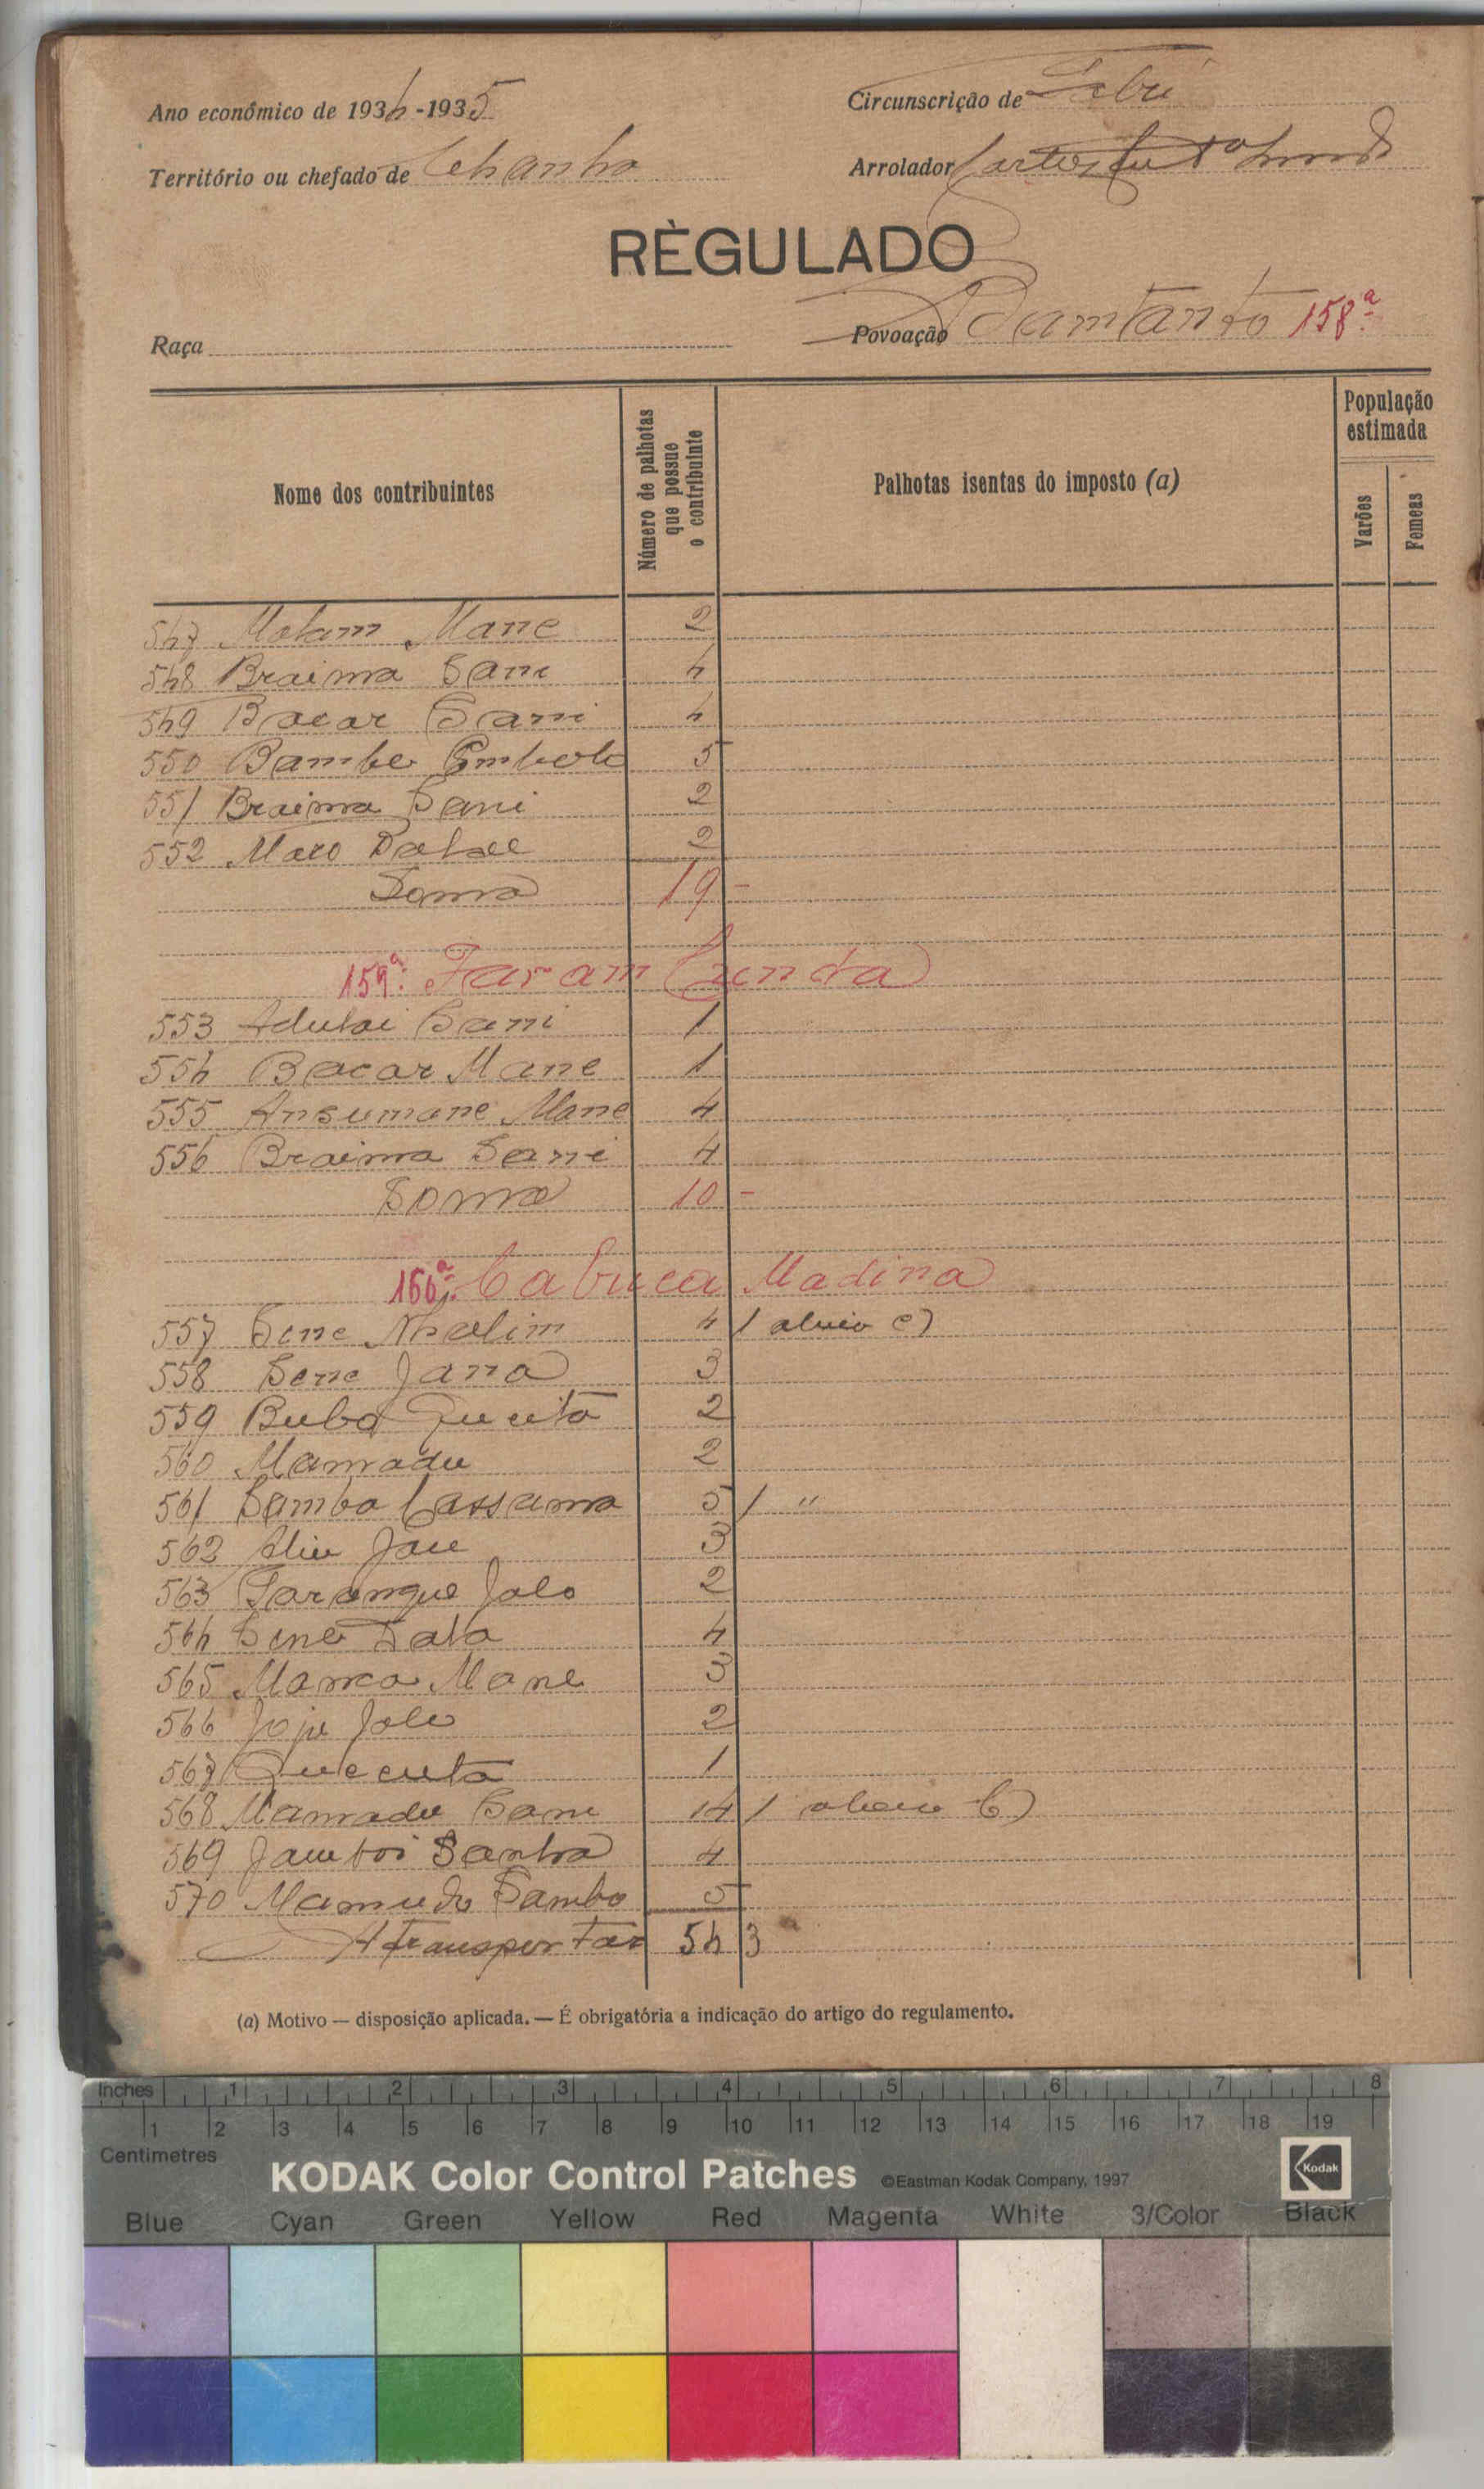 Ano económico de 1934-1935
Circunscrição de Gabú
Território ou chefado de Chanha
Arrolador
RÈGULADO
Raça
Povoação Damtanto 158ª
Nome dos contribuintes
Número de palhotas que possue o contribuinte
Palhotas isentas do imposto (a)
População estimada
Varões
Femeas
547 Malam Mane 2
548 Braima Sani 4
549 Bacar Sani 4
550 Bambe Embalo 5
551 Braima Sani 2
552 Maro 2
Soma 19-
159ª: Faram Cunda
553 Adulai Sani 1
554 Bacar Mane 1
555 Ansumane Mane 4
556 Braima Sani 4
Soma 10-
160ª: Cabuca Madina
557 Sene Nhalim 4 1 alinea c)
558 Sene Jana 3
559 Buba Quecuta 2
560 Mamadu 2
561 Samba Cassama 5 1 "
562 Aliu Jau 3
563 Farangue Jalo 2
564 Sene Data 4
565 Manca Mane 3
566 Joje Jalo 2
567 Quecuta 1
568 Mamadu Sani 14 1 alinea b)
569 Jamboi Sanha 4
570 Mamudo Samba 5
A transportar 54 3
(a) Motivo — disposição aplicada. — É obrigatória a indicação do artigo do regulamento.
Inches 1 2 3 4 5 6 7 8
1 2 3 4 5 6 7 8 9 10 11 12 13 14 15 16 17 18 19
Centimetres
KODAK Color Control Patches ©Eastman Kodak Company, 1997 Kodak
Blue Cyan Green Yellow Red Magenta White 3/Color Black